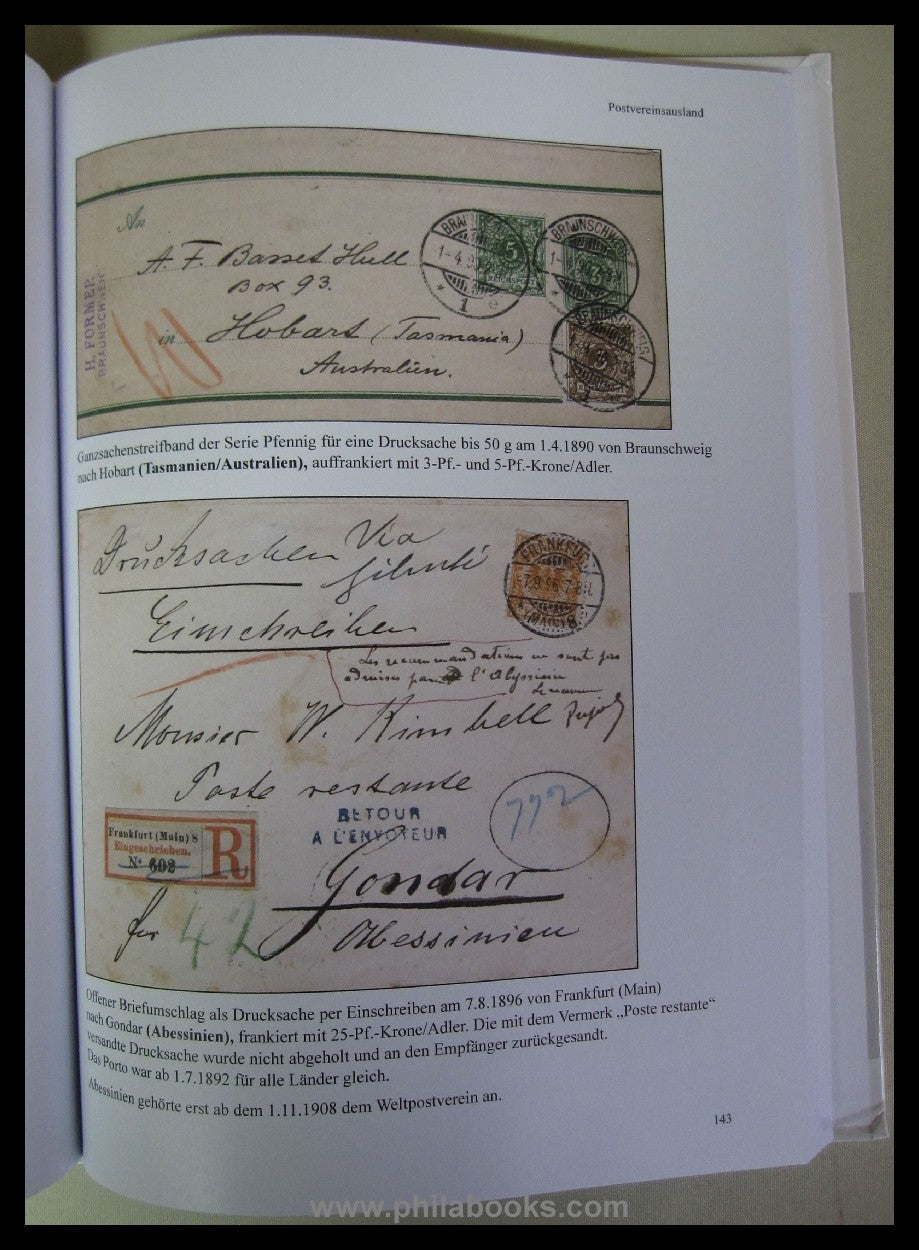 Postvereinsausland
An
A. F. Basset Hull
Box 93.
in Hobart (Tasmania)
Australien.
H. FORMER,
BRAUNSCHWEIG
BRAUNSCHWEIG
1-4
1
5
3
3
Ganzsachenstreifband der Serie Pfennig für eine Drucksache bis 50 g am 1.4.1890 von Braunschweig
nach Hobart (Tasmanien/Australien), auffrankiert mit 3-Pf.- und 5-Pf.-Krone/Adler.
Drucksachen Via
Gibuti
Einschreiben
FRANKFURT
7.8.96.7-8N.
(MAIN) 8
Les recommandations ne sont pas
admises par l'Abyssinie
Monsier W. Kimbell
Poste restante
RETOUR
A L'ENVOYEUR
772
Frankfurt (Main) 8
Eingeschrieben.
Nº 602
R
Gondar
für 42
Abessinien
Offener Briefumschlag als Drucksache per Einschreiben am 7.8.1896 von Frankfurt (Main)
nach Gondar (Abessinien), frankiert mit 25-Pf.-Krone/Adler. Die mit dem Vermerk „Poste restante“
versandte Drucksache wurde nicht abgeholt und an den Empfänger zurückgesandt.
Das Porto war ab 1.7.1892 für alle Länder gleich.
Abessinien gehörte erst ab dem 1.11.1908 dem Weltpostverein an.
143
www.philabooks.com